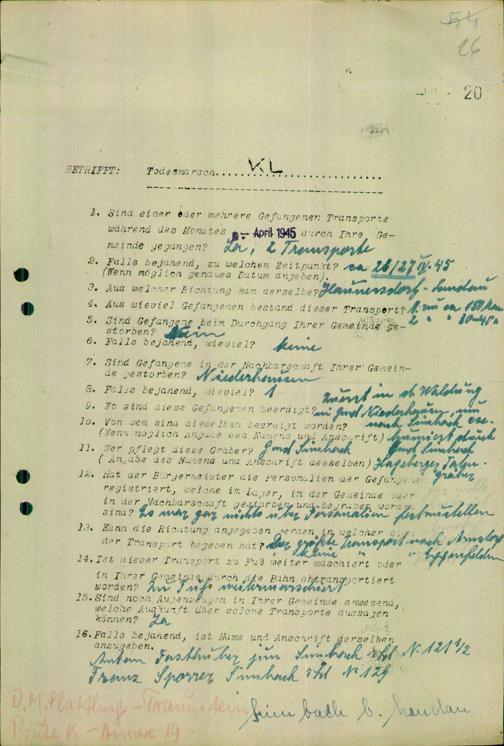 54
26
20
BETRIFFT: Todesmarsch......KL..................
1. Sind einer oder mehrere Gefangenen Transporte
während des Monates April 1945 durch Ihre Ge-
meinde gegangen? Ja, 2 Transporte
2. Falls bejahend, zu welchem Zeitpunkt? ca 26/27 IV. 45
(Wenn möglich genaues Datum angeben).
3. Aus welcher Richtung kam derselbe? Haunersdorf-Landau
4. Aus wieviel Gefangenen bestand dieser Transport? 1. ca 150
5. Sind Gefangene beim Durchgang Ihrer Gemeinde ge- 2
storben? Nein
6. Falls bejahend, wieviel? keine
7. Sind Gefangene in der Nachbarschaft Ihrer Gemein-
de gestorben? Niederhausen
8. Falls bejahend, wieviel? 1 zuerst in der Waldung
9. Wo sind diese Gefangenen beerdigt? in Niederhausen, nun
10. Von wem sind dieselben beerdigt worden? nach Simbach
(Wenn möglich Angabe des Namens und Anschrift) durch
11. Wer pflegt diese Gräber? Gmd Simbach Gmd Simbach
( Angabe des Namens und Anschrift desselben)
12. Hat der Bürgermeister die Personalien der Gefangenen
registriert, welche im Lager, in der Gemeinde oder
in der Nachbarschaft gestorben und begraben worden
sind? Es war gar nichts über Personalien festzustellen
13. Kann die Richtung angegeben werden in welcher sich
der Transport begeben hat? Der größte Transport nach Arnstorf
kleine " " Eggenfelden
14. Ist dieser Transport zu Fuß weiter maschiert oder
in Ihrer Gemeinde durch die Bahn abtransportiert
worden? Zu Fuß weitermarschiert
15. Sind noch Augenzeugen in Ihrer Gemeinde anwesend,
welche Auskunft über solche Transporte aussagen
können? Ja
16. Falls bejahend, ist Name und Anschrift derselben
anzugeben.
Anton Fasthuber jun Simbach N. 121 1/2
Franz Sporrer Simbach N 129
D.M. Plattling - Traunstein
Route K - Annex 19. Simbach b. Landau